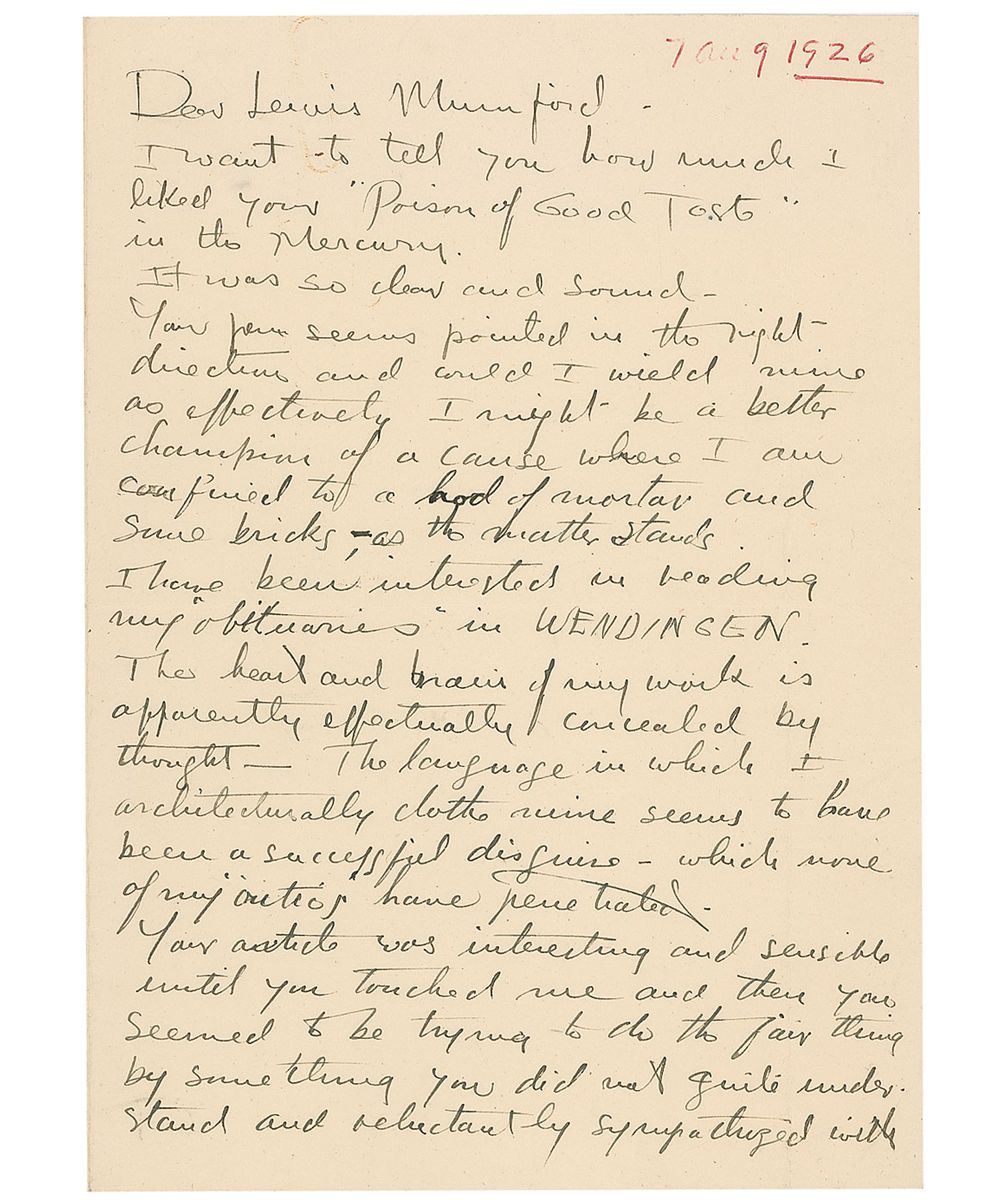 7 Aug 1926
Dear Lewis Mumford -
I want to tell you how much I
liked your "Poison of Good Taste"
in the Mercury.
It was so clear and sound -
Your pen seems pointed in the right
direction and could I wield mine
as effectively I might be a better
champion of a cause where I am
confined to a hod of mortar and
some bricks, - as the matter stands.
I have been interested in reading
my "obituaries" in WENDINGEN.
The heart and brain of my work is
apparently effectually concealed by
thought — The language in which I
architecturally clothe mine seems to have
been a successful disguise - which none
of my "critics" have penetrated.
Your article was interesting and sensible
until you touched me and then you
seemed to be trying to do the fair thing
by something you did not quite under-
stand and reluctantly sympathized with